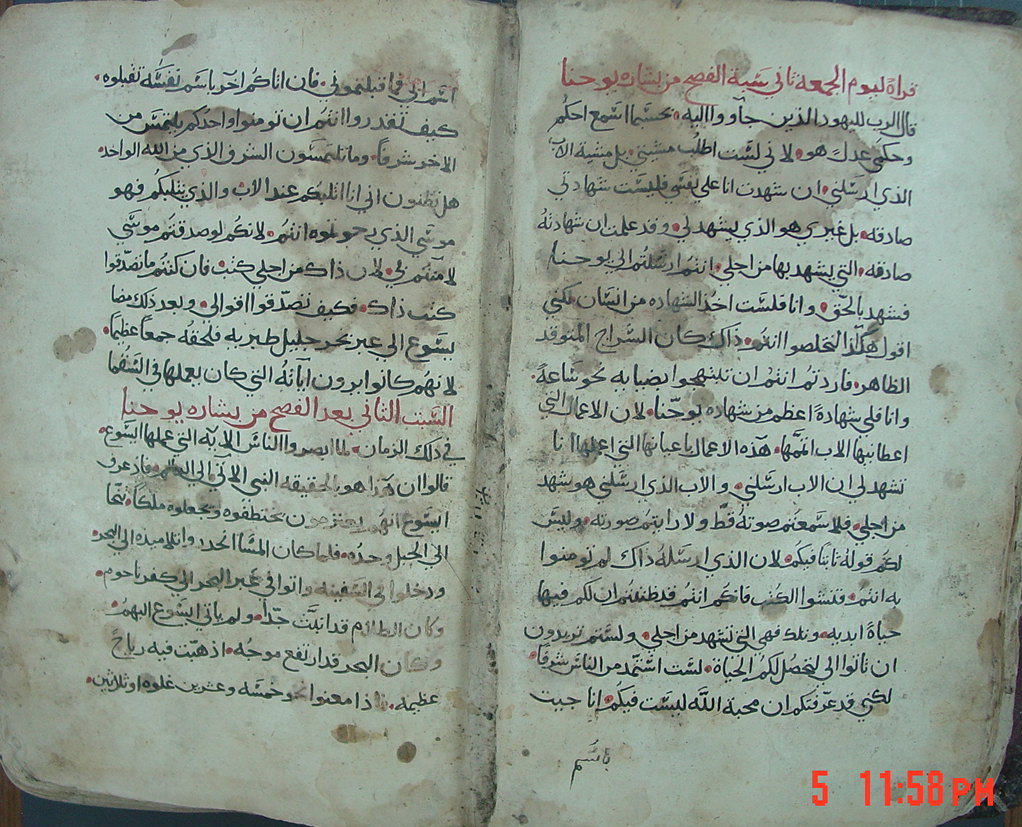 قراة ليوم الجمعه ثاني سبة الفصح من بشاره يوحنا
قال الرب لليهود الذين جآووا اليه • بحسبما اسمع احكم
وحكمي عدلٌ هو • لاني لست اطلب مشيتي • بل مشية الاب
الذي ارسلني • ان شهدت انا علي نفسي فليست شهادتي
صادقه • بل غيري هو الذي يشهد لي • وقد علمت ان شهادتهُ
صادقه • التي يشهد بها من اجلي • انتم ارسلتم الي يوحنا
فشهد بالحق • وانا فلست اخد الشهاده من انسان لكني
اقول هكذا لتخلصوا انتم • ذاك كان السراج المتوقد
الظاهر • فاردتم انتم ان تبتهجوا بضيايه نحو ساعة •
وانا فلي شهادةً اعظم من شهاده يوحنا • لان الاعمال التي
اعطانيها الاب لاتمها • هذه الاعمال باعيانها التي اعملها انا
تشهد لي ان الاب ارسلني • والاب الذي ارسلني هو شهد
من اجلي • فلا سمعتم صوتهُ قط ولا رايتم صورته • وليس
لكم قولهُ ثابتاً فيكم • لان الذي ارسلهُ ذاك لم تومنوا
به انتم • فتشوا الكتب فانكم انتم قد ظننتم ان لكم فيها
حياةً ابديه • وتلك فهي التي تشهد من اجلي • ولستم تريدون
ان تاتوا الي لتحصل لكم الحياة • لست استمد من الناس شرفاً •
لكني قد عرفتكم ان محبة الله ليست فيكم • انا جيت
باسم
اسم ابي فما قبلتموني • فان اتاكم اخر باسم نفسه تقبلوه •
كيف تقدروا انتم ان تومنوا واحدكم يلتمس من
الاخر شرفاً • وما تلتمسون الشرف الذي من الله الواحد •
هل تظنون اني انا اثلبكم عند الاب والذي يثلبكم فهو
موسي الذي رجوتموه انتم • لانكم لو صدقتم موسي
لامنتم بي • لان ذاك من اجلي كتب • فان كنتم ما تصدقوا
كتب ذاك • فكيف تصدقوا اقوالي • وبعد ذلك مضا
يسوع الي عبر بحر جليل طبريه فلحقه جمعاً عظيماً •
لانهم كانوا يرون آياته التي كان يعملها في السقما
السبت الثاني بعد الفصح من بشاره يوحنا
في ذلك الزمان • لما ابصروا الناس الايه التي عملها ايسوع •
قالوا ان هذا هو بالحقيقه النبي الاتي الي العالم • فاذ عرف
ايسوع انهم يعتزمون يختطفوه ويجعلوه ملكاً • تنحا
الي الجبل وحدهُ • فلما كان المسا انحدروا تلاميذه الي البحر •
ودخلوا الي السفينه واتوا في عبر البحر الي كفرناحوم •
وكان الظلام قد ابلت جداً • ولم ياتي ايسوع اليهم •
وكان البحر قد ارتفع موجُه • اذ هبت فيه رياح
عظيمه • فاذا معنوا نحو خمسه وعشرين غلوه او ثلاثين •
5 11:58 PM